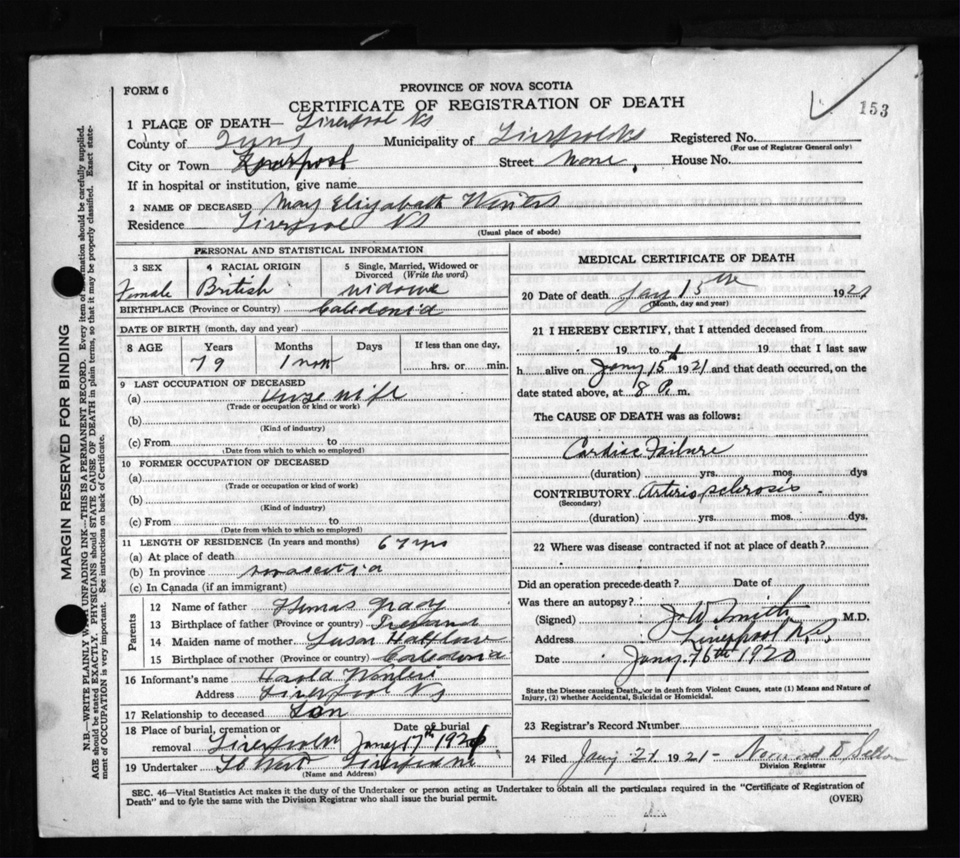 FORM 6
PROVINCE OF NOVA SCOTIA
CERTIFICATE OF REGISTRATION OF DEATH
153
1 PLACE OF DEATH— Liverpool NS
County of Municipality of Liverpool NS Registered No.
(For use of Registrar General only)
City or Town Liverpool Street None House No.
If in hospital or institution, give name
2 NAME OF DECEASED Mary Elizabeth Winters
Residence Liverpool NS
(Usual place of abode)
PERSONAL AND STATISTICAL INFORMATION
3 SEX 4 RACIAL ORIGIN 5 Single, Married, Widowed or Divorced (Write the word)
Female British widowe
BIRTHPLACE (Province or Country) Caledonia
DATE OF BIRTH (month, day and year)
8 AGE Years Months Days If less than one day,
79 1 hrs. or min.
9 LAST OCCUPATION OF DECEASED
(a) wife
(Trade or occupation or kind or work)
(b)
(Kind of industry)
(c) From to
(Date from which to which so employed)
10 FORMER OCCUPATION OF DECEASED
(a)
(Trade or occupation or kind of work)
(b)
(Kind of industry)
(c) From to
(Date from which to which so employed)
11 LENGTH OF RESIDENCE (In years and months) 67 yrs
(a) At place of death
(b) In province novascotia
(c) In Canada (if an immigrant)
Parents
12 Name of father Thomas Gray
13 Birthplace of father (Province or country) Ireland
14 Maiden name of mother Susan
15 Birthplace of mother (Province or country) Caledonia
16 Informant's name Harold Winters
Address Liverpool NS
17 Relationship to deceased Son
18 Place of burial, cremation or removal Liverpool Date of burial Jany 17th 1921
19 Undertaker Liverpool NS
(Name and Address)
MEDICAL CERTIFICATE OF DEATH
20 Date of death Jany 15th 1921
(Month, day and year)
21 I HEREBY CERTIFY, that I attended deceased from
19 to 19 that I last saw
h alive on Jany 15th 1921 and that death occurred, on the
date stated above, at 8 P. m.
The CAUSE OF DEATH was as follows:
Cardiac Failure
(duration) yrs. mos. dys
CONTRIBUTORY Arterio sclerosis
(Secondary)
(duration) yrs. mos. dys.
22 Where was disease contracted if not at place of death?
Did an operation precede death? Date of
Was there an autopsy?
(Signed) J W Smith M.D.
Address Liverpool N.S.
Date Jany 16th 1920
State the Disease causing Death, or in death from Violent Causes, state (1) Means and Nature of Injury, (2) whether Accidental, Suicidal or Homicidal.
23 Registrar's Record Number
24 Filed Jany 21 1921
Division Registrar
SEC. 46—Vital Statistics Act makes it the duty of the Undertaker or person acting as Undertaker to obtain all the particulars required in the "Certificate of Registration of
Death" and to fyle the same with the Division Registrar who shall issue the burial permit. (OVER)
MARGIN RESERVED FOR BINDING
N.B.—WRITE PLAINLY WITH UNFADING INK—THIS IS A PERMANENT RECORD. Every item of information should be carefully supplied.
AGE should be stated EXACTLY. PHYSICIANS should STATE CAUSE OF DEATH in plain terms, so that it may be properly classified. Exact statement
of OCCUPATION is very important. See instructions on back of Certificate.